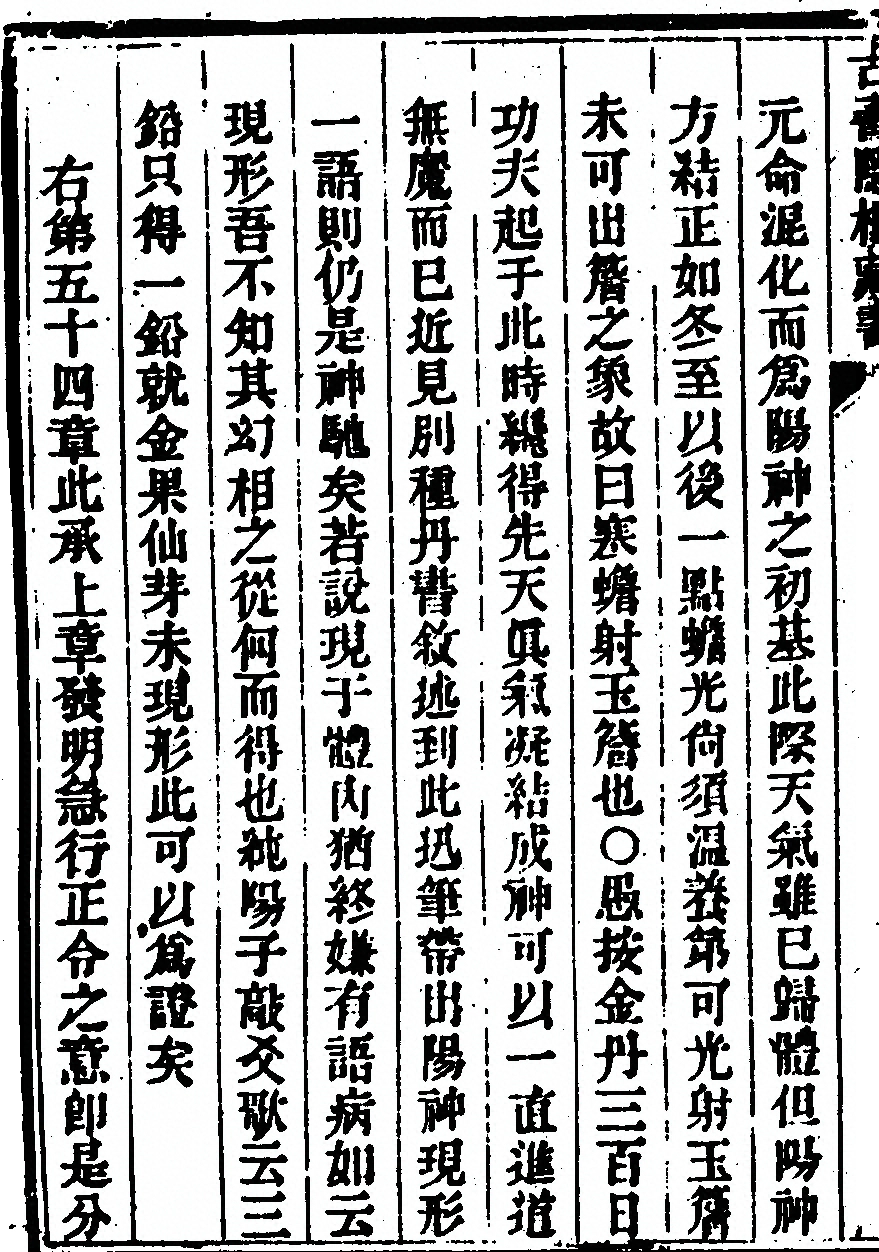 元命混化而爲陽神之初基此際天氣雖已歸體但陽神
方結正如冬至以後一點蟾光尙須溫養第可光射玉簷
未可出簷之象故曰寒蟾射玉簷也○愚按金丹三百日
功夫起于此時纔得先天眞炁凝結成神可以一直進道
無魔而已近見別種丹書敘述到此処筆帶出陽神現形
一語則仍是神馳矣若說現于體內猶終嫌有語病如云
現形吾不知其幻相之從何而得也純陽子敲爻歌云三
鉛只得一鉛就金果仙芽未現形此可以爲證矣
右第五十四章此承上章發明急行正令之意卽是分